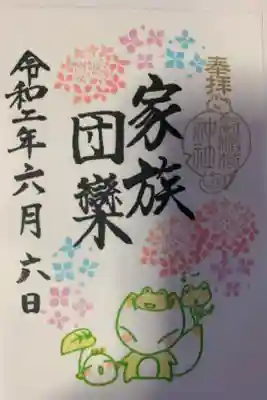 奉拝
神社
家族
団欒
令和年六月六日